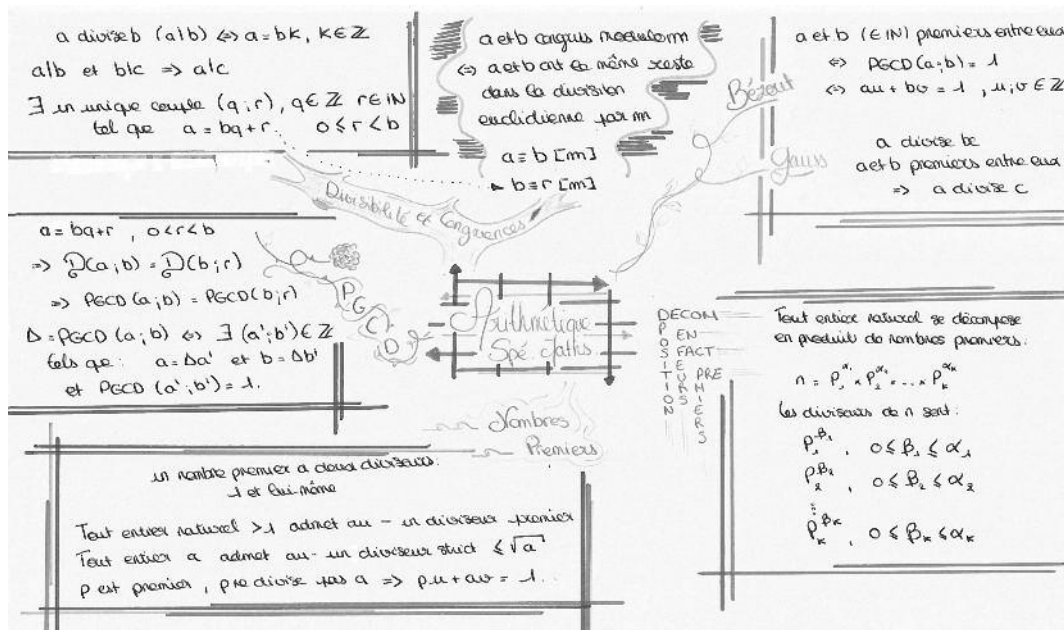 a divise b (a|b) ⇔ a = bk, k ∈ ℤ
a|b et b|c ⇒ a|c
∃ un unique couple (q;r), q ∈ ℤ r ∈ IN
tel que a = bq + r. 0 ≤ r < b
a et b congrus modulo m
⇔ a et b ont le même reste
dans la division
euclidienne par m
a ≡ b [m]
b ≡ r [m]
Bézout
a et b (∈ IN) premiers entre eux
⇔ PGCD(a;b) = 1
⇔ au + bv = 1, u;v ∈ ℤ
Gauss
a divise bc
a et b premiers entre eux
⇒ a divise c
Divisibilité et Congruences
a = bq + r, 0 < r < b
⇒ D(a;b) = D(b;r)
⇒ PGCD(a;b) = PGCD(b;r)
Δ = PGCD(a;b) ⇔ ∃ (a';b') ∈ ℤ
tels que : a = Δa' et b = Δb'
et PGCD(a';b') = 1.
PGCD
Arithmétique
Spé. Maths
DECOMPOSITION
EN
FACTEURS
PREMIERS
Tout entier naturel se décompose
en produit de nombres premiers.
n = P₁^α₁ × P₂^α₂ × ... × Pₖ^αₖ
Les diviseurs de n sont :
P₁^β₁, 0 ≤ β₁ ≤ α₁
P₂^β₂, 0 ≤ β₂ ≤ α₂
⋮
Pₖ^βₖ, 0 ≤ βₖ ≤ αₖ
Nombres
Premiers
un nombre premier a deux diviseurs:
1 et lui-même
Tout entier naturel > 1 admet au - un diviseur premier
Tout entier a admet au - un diviseur strict ≤ √a
p est premier, p ne divise pas a ⇒ pu + av = 1.